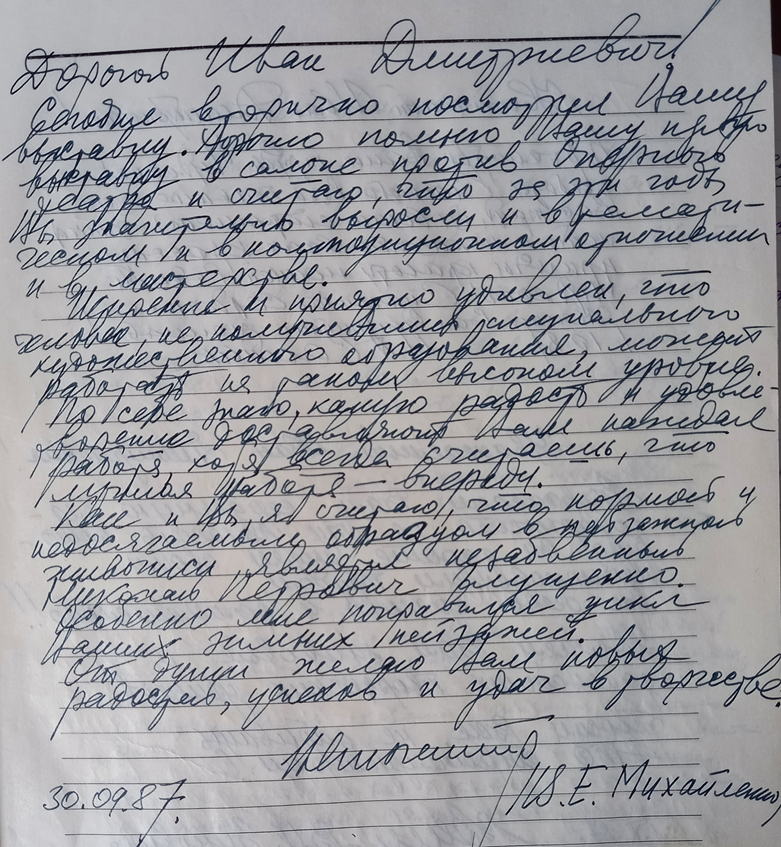 Дорогой Иван Дмитриевич!
Сегодня вторично посмотрел Вашу
выставку. Хорошо помню Вашу первую
выставку в салоне против Оперного
театра и считаю, что за эти годы
Вы значительно выросли и в темати-
ческом и в композиционном отношении
и в мастерстве.
Искренне и приятно удивлен, что
человек, не получивший специального
художественного образования, может
работать на таком высоком уровне.
По себе знаю, какую радость и удовле-
ворение доставляют Вам каждая
работа, хотя всегда считаешь, что
лучшая работа – впереди.
Как и Вы, я считаю, что нормой и
недосягаемым образцом в пейзажной
живописи является незабвенный
Николай Петрович Глущенко.
Особенно мне понравился цикл
Ваших зимних пейзажей.
От души желаю Вам новых
радостей, успехов и удач в творчестве.
30.09.87. Ю.Е. Михайленко,